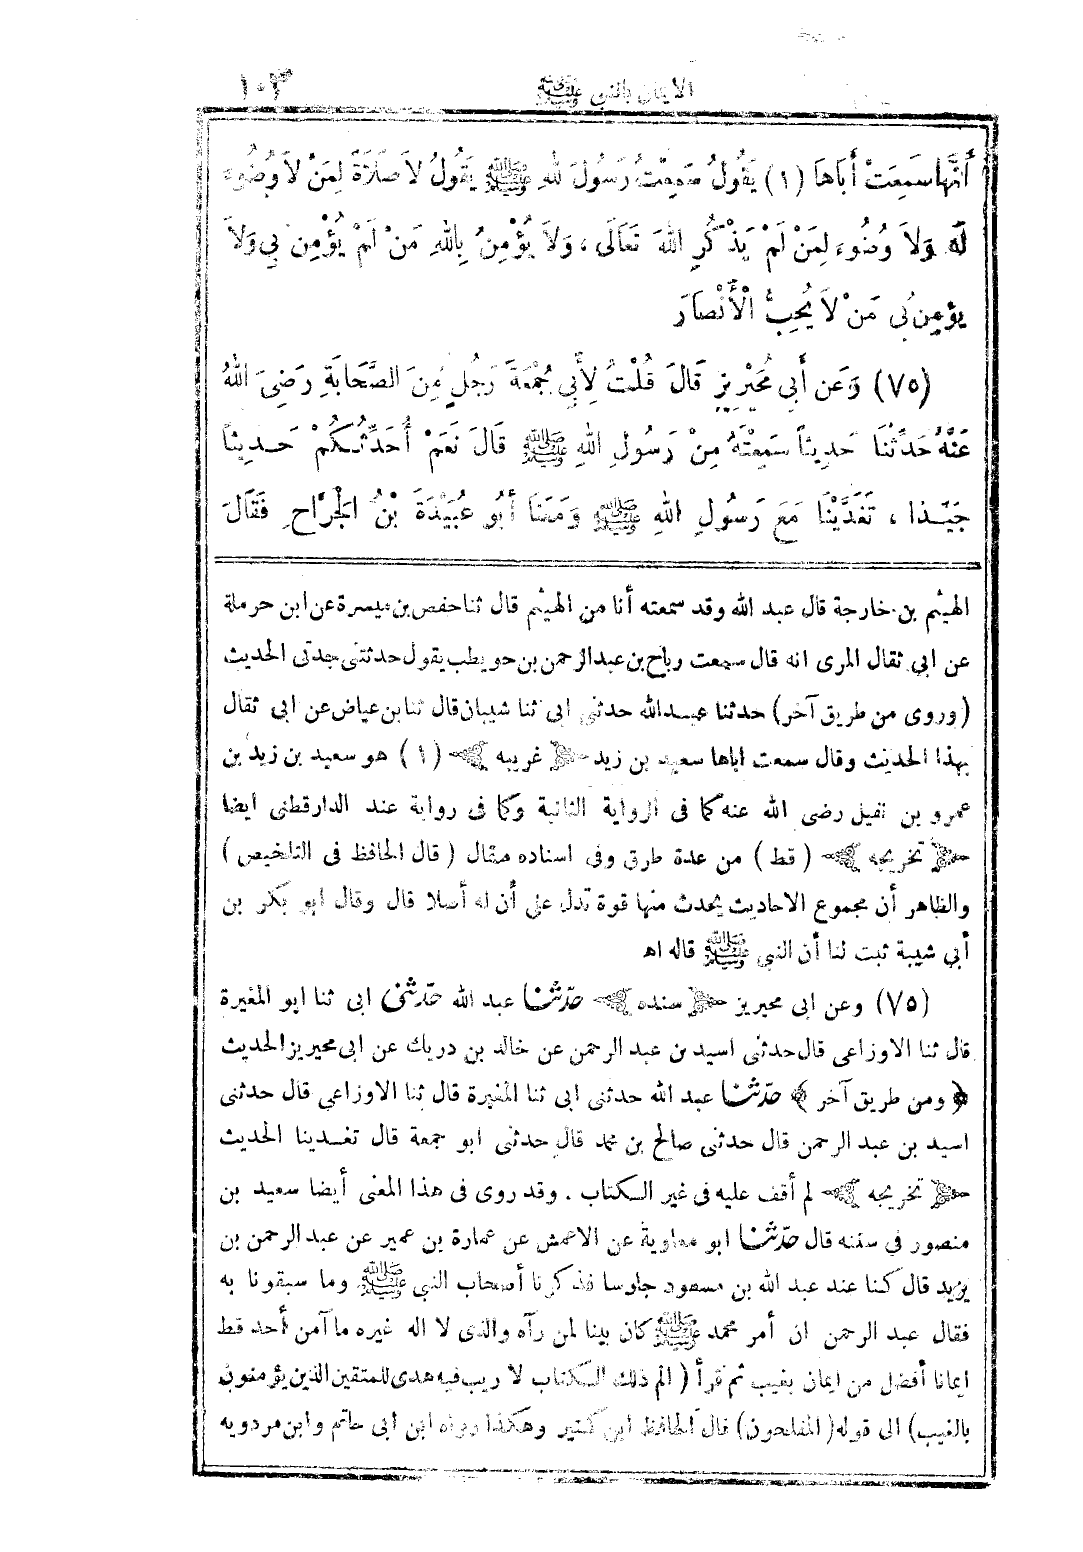 الايمان بالنبي ﷺ ١٠٣
أَنَّهَا سَمِعَتْ أَبَاهَا (١) يَقُولُ سَمِعْتُ رَسُولَ اللهِ ﷺ يَقُولُ لاَ صَلاَةَ لِمَنْ لاَ وُضُوءَ
لَهُ وَلاَ وُضُوءَ لِمَنْ لَمْ يَذْكُرِ اللهَ تَعَالَى ، وَلاَ يُؤْمِنُ بِاللهِ مَنْ لَمْ يُؤْمِن بِي وَلاَ
يؤمِن بِي مَنْ لاَ يُحِبُّ الْأَنْصَارَ
(٧٥) وَعَن أَبِي مُحَيْرِيزٍ قَالَ قُلْتُ لِأَبِي جُمْعَةَ رَجُلٍ مِنَ الصَّحَابَةِ رَضِيَ اللهُ
عَنْهُ حَدِّثْنَا حَدِيثاً سَمِعْتَهُ مِنْ رَسُولِ اللهِ ﷺ قَالَ نَعَمْ أُحَدِّثُكُمْ حَدِيثاً
جَيِّدا ، تَغَدَّيْنَا مَعَ رَسُولِ اللهِ ﷺ وَمَعَنَا أَبُو عُبَيْدَةَ بْنُ الجَرَّاحِ فَقَالَ
الهيثم بن خارجة قال عبد الله وقد سمعته أنا من الهيثم قال ثنا حفص بن ميسرة عن ابن حرملة
عن ابي ثقال المرى انه قال سمعت رباح بن عبد الرحمن بن حويطب يقول حدثتنى جدتى الحديث
(وروى من طريق آخر) حدثنا عبد الله حدثني ابي ثنا شيبان قال ثنا بن عياض عن ابى ثقال
بهذا الحديث وقال سمعت اباها سعيد بن زيد ﴿ غريبه ﴾ (١) هو سعيد بن زيد بن
عمرو بن نفيل رضى الله عنه كما فى الرواية الثانية وكما فى رواية عند الدارقطنى ايضا
﴿ تخريجه ﴾ (قط) من عدة طرق وفى اسناده مقال (قال الحافظ فى التلخيص)
والظاهر أن مجموع الاحاديث يحدث منها قوة تدل على أن له أصلا قال وقال ابو بكر بن
أبي شيبة ثبت لنا أن النبي ﷺ قاله اه
(٧٥) وعن ابى محيريز ﴿ سنده ﴾ حدّثنا عبد الله حدّثنى ابى ثنا ابو المغيرة
قال ثنا الاوزاعى قال حدثنى اسيد بن عبد الرحمن عن خالد بن دريك عن ابى محيريز الحديث
﴿ ومن طريق آخر ﴾ حدّثنا عبد الله حدثنى ابى ثنا المغيرة قال ثنا الاوزاعى قال حدثنى
اسيد بن عبد الرحمن قال حدثنى صالح بن محمد قال حدثنى ابو جمعة قال تغدينا الحديث
﴿ تخريجه ﴾ لم أقف عليه فى غير الكتاب . وقد روى فى هذا المعنى أيضا سعيد بن
منصور في سننه قال حدّثنا ابو معاوية عن الاعمش عن عمارة بن عمير عن عبد الرحمن بن
يزيد قال كنا عند عبد الله بن مسعود جلوسا فذكرنا أصحاب النبي ﷺ وما سبقونا به
فقال عبد الرحمن ان أمر محمد ﷺ كان بينا لمن رآه والذى لا اله غيره ما آمن أحد قط
ايمانا أفضل من ايمان بغيب ثم قرأ (الم ذلك الكتاب لا ريب فيه هدى للمتقين الذين يؤمنون
بالغيب) الى قوله (المفلحون) قال الحافظ ابن كثير وهكذا رواه ابن ابى حاتم وابن مردويه